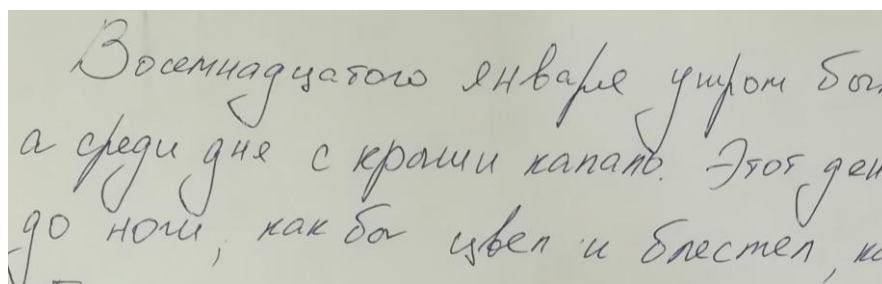 Восемнадцатого января утром
а среди дня с крыши капало. Этот
до ночи, как бы цвел и блестел,